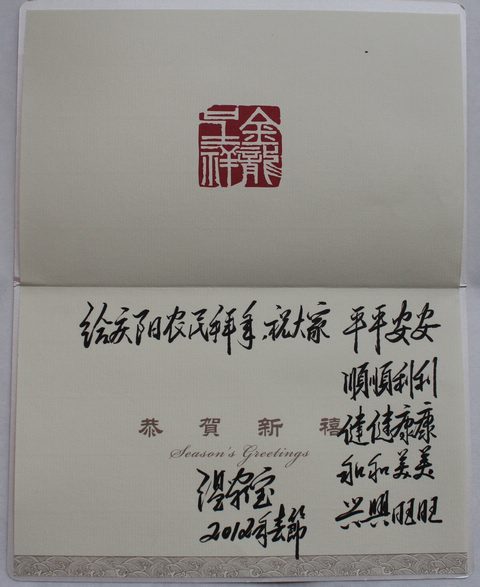 金龍
呈祥
给庆阳农民拜年,祝大家 平平安安
順順利利
健健康康
和和美美
兴興旺旺
恭賀新禧
Season's Greetings
温家宝
2012年春節